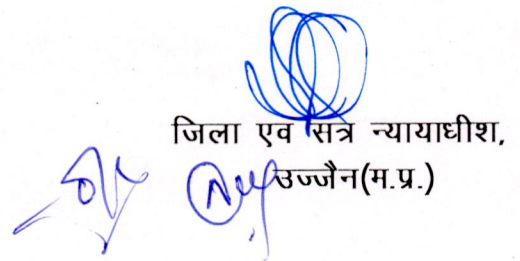 जिला एव सत्र न्यायाधीश,
उज्जैन(म.प्र.)